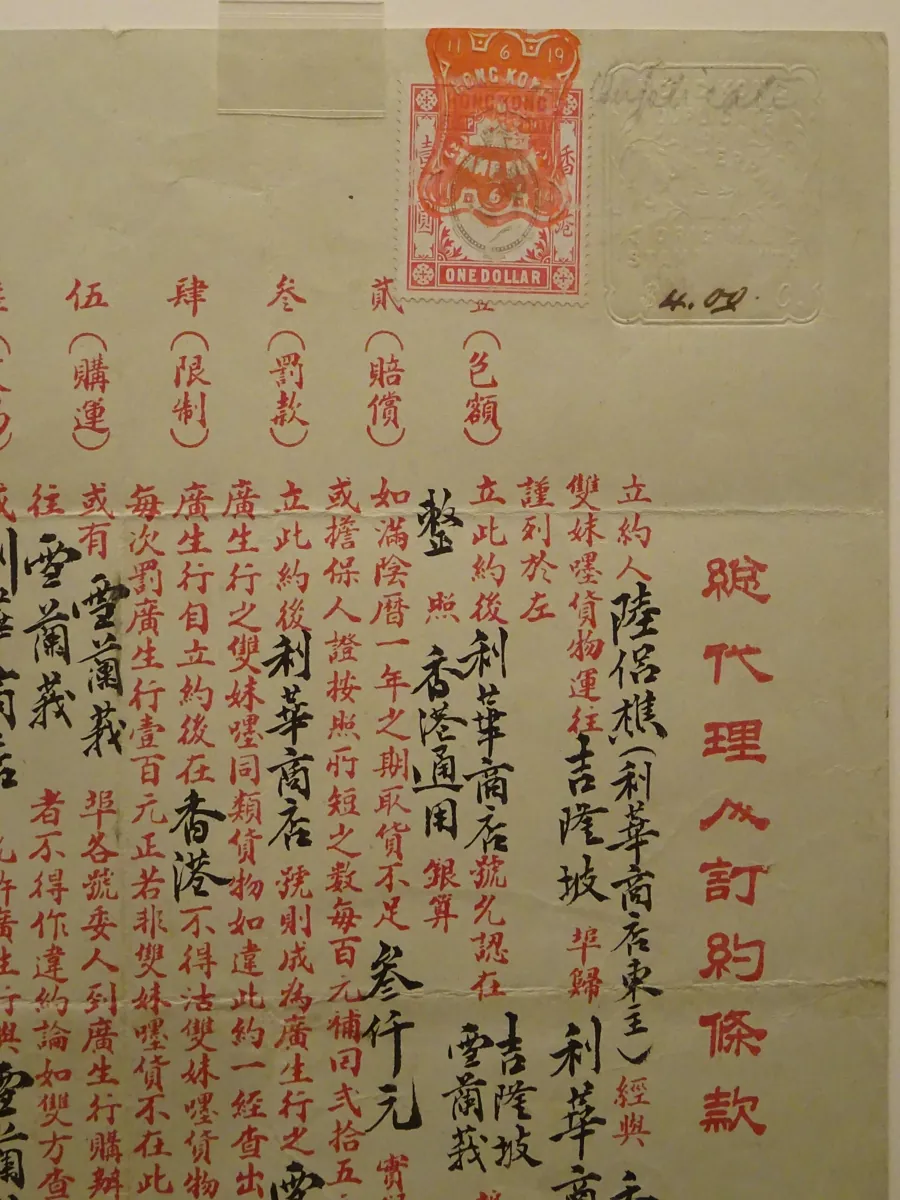 11 6 19
HONG KONG
HONGKONG
STAMP DUTY
香港
壹圓
ONE DOLLAR
4.00.
總代理人訂約條款
立約人陸侶樵(利華商店東主)經與
雙妹嚜貨物運往吉隆坡埠歸利華商
謹列於左
壹(包額)立此約後利華商店號允認在吉隆坡雪蘭莪
整照香港通用銀算
貳(賠償)如滿陰曆一年之期取貨不足叁仟元實
或擔保人證按照所短之數每百元補回弍拾五
叁(罰款)立此約後利華商店號則成為廣生行之雪
廣生行之雙妹嚜同類貨物如違此約一經查出
肆(限制)廣生行自立約後在香港不得沽雙妹嚜貨物
每次罰廣生行壹百元正若非雙妹嚜貨不在此
伍(購運)或有雪蘭莪埠各號委人到廣生行購辦
往雪蘭莪者不得作違約論如雙方查
利華商店允許廣生行與雪蘭